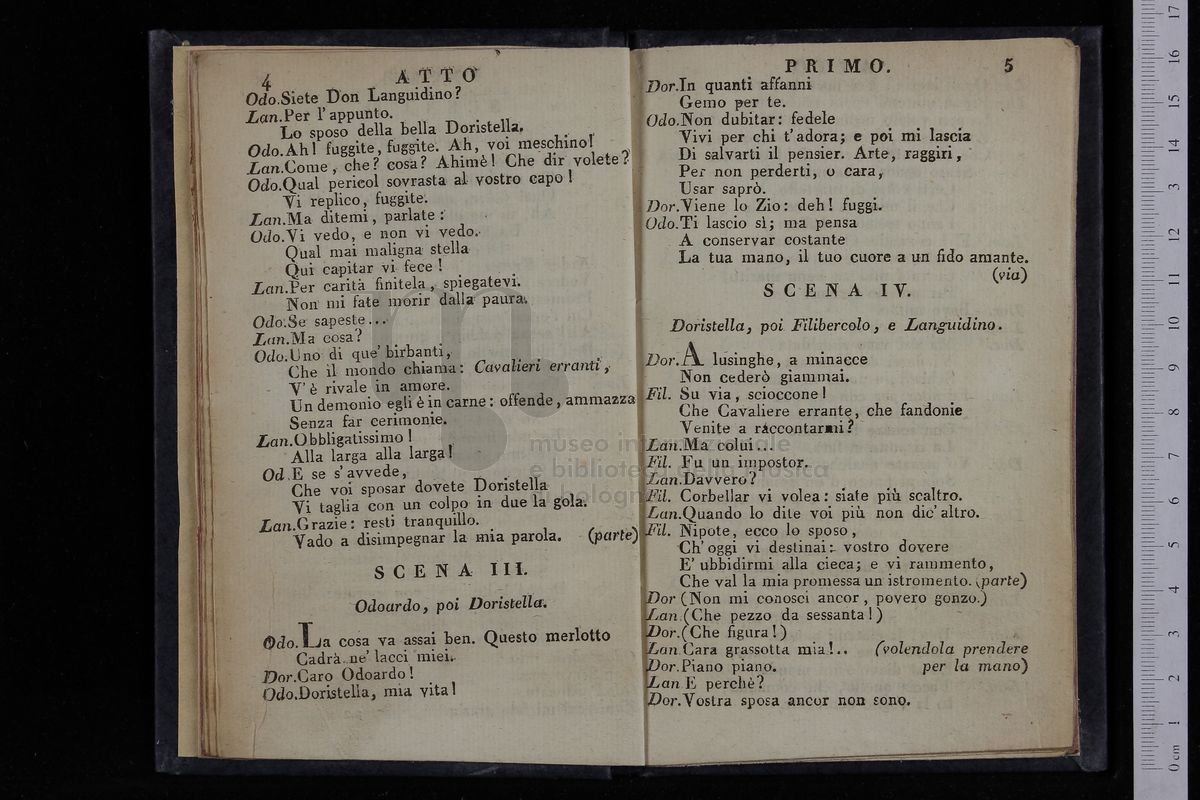 4 ATTO
Odo.Siete Don Languidino?
Lan.Per l'appunto.
Lo sposo della bella Doristella.
Odo.Ah! fuggite, fuggite. Ah, voi meschino!
Lan.Come, che? cosa? Ahimè! Che dir volete?
Odo.Qual pericol sovrasta al vostro capo!
Vi replico, fuggite.
Lan.Ma ditemi, parlate:
Odo.Vi vedo, e non vi vedo.
Qual mai maligna stella
Qui capitar vi fece!
Lan.Per carità finitela, spiegatevi.
Non mi fate morir dalla paura.
Odo.Se sapeste...
Lan.Ma cosa?
Odo.Uno di que' birbanti,
Che il mondo chiama: Cavalieri erranti,
V'è rivale in amore.
Un demonio egli è in carne: offende, ammazza
Senza far cerimonie.
Lan.Obbligatissimo!
Alla larga alla larga!
Od.E se s'avvede,
Che voi sposar dovete Doristella
Vi taglia con un colpo in due la gola.
Lan.Grazie: resti tranquillo.
Vado a disimpegnar la mia parola. (parte)
SCENA III.
Odoardo, poi Doristella.
Odo.La cosa va assai ben. Questo merlotto
Cadrà ne' lacci miei.
Dor.Caro Odoardo!
Odo.Doristella, mia vita!
PRIMO. 5
Dor.In quanti affanni
Gemo per te.
Odo.Non dubitar: fedele
Vivi per chi t'adora; e poi mi lascia
Di salvarti il pensier. Arte, raggiri,
Per non perderti, o cara,
Usar saprò.
Dor.Viene lo Zio: deh! fuggi.
Odo.Ti lascio sì; ma pensa
A conservar costante
La tua mano, il tuo cuore a un fido amante.
(via)
SCENA IV.
Doristella, poi Filibercolo, e Languidino.
Dor.A lusinghe, a minacce
Non cederò giammai.
Fil. Su via, scioccone!
Che Cavaliere errante, che fandonie
Venite a raccontarmi?
Lan.Ma colui...
Fil. Fu un impostor.
Lan.Davvero?
Fil. Corbellar vi volea: siate più scaltro.
Lan.Quando lo dite voi più non dic' altro.
Fil. Nipote, ecco lo sposo,
Ch'oggi vi destinai: vostro dovere
E' ubbidirmi alla cieca; e vi rammento,
Che val la mia promessa un istromento. (parte)
Dor (Non mi conosci ancor, povero gonzo.)
Lan.(Che pezzo da sessanta!)
Dor.(Che figura!)
Lan.Cara grassotta mia!.. (volendola prendere
Dor.Piano piano. per la mano)
Lan E perchè?
Dor.Vostra sposa ancor non sono.
museo internazionale
e biblioteca della musica
di bologna
0 cm 1 2 3 4 5 6 7 8 9 10 11 12 13 14 15 16 17